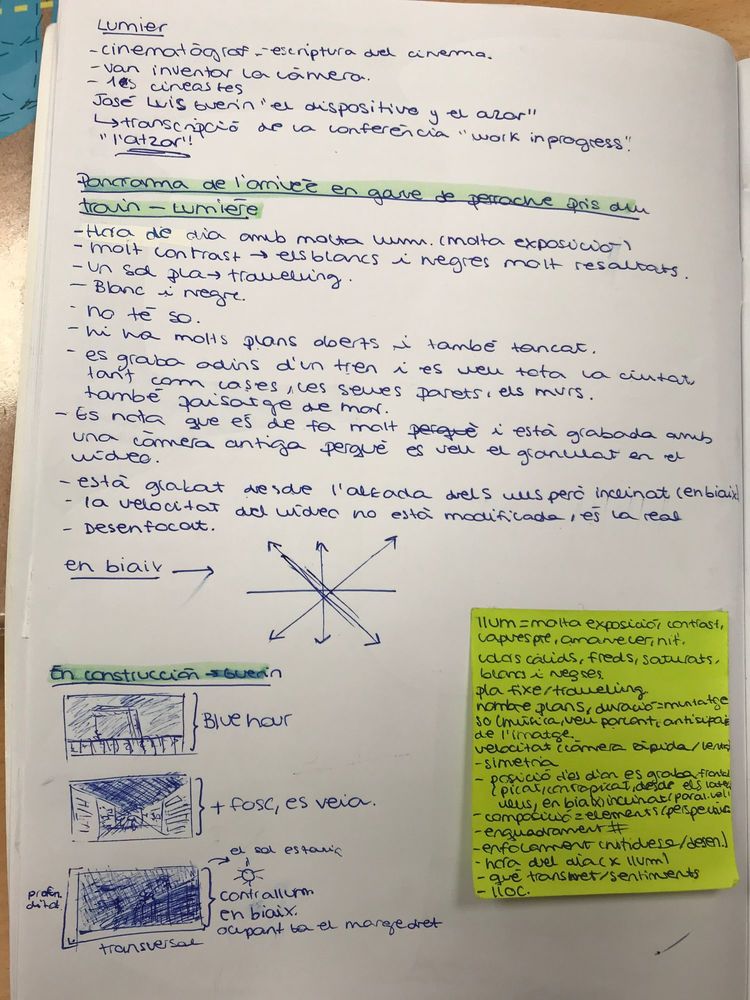 Lumier
- cinematògraf - escriptura del cinema.
- van inventar la càmera.
- 1es cineastes
José Luis Guerin "el dispositivo y el azar"
↳ transcripció de la conferència "work in progress".
"l'atzar"!
Panorama de l'arrivée en gare de perrache pris du
train - Lumière
- Hora de dia amb molta llum. (molta exposició)
- molt contrast → els blancs i negres molt resaltats.
- Un sol pla → travelling.
- Blanc i negre.
- no té so.
- hi ha molts plans oberts i també tancat.
- es graba adins d'un tren i es veu tota la ciutat
tant com cases, les seves parets, els murs.
també paisatge de mar.
- Es nota que és de fa molt perquè i està grabada amb
una càmera antiga perquè es veu el granulat en el
vídeo.
- està grabat desde l'alçada dels ulls però inclinat (en biaix)
- la velocitat del vídeo no està modificada, és la real
- Desenfocat.
en biaix →
En construcción → Guerin
Blue hour
+ fosc, es veia.
el sol estaria
profun
ditat
contrallum
en biaix.
ocupant tot el marge dret
transversal
llum = molta exposició, contrast,
capvespre, amanecer, nit.
colors càlids, freds, saturats,
blancs i negres
pla fixe/travelling
nombre plans, duració = muntatge
so (música, veu parlant, anticipa
de l'imatge.
velocitat (càmera ràpida/lenta)
- simetria
- posició des d'on es graba frontal
(picat, contrapicat, desde els late
ulls, en biaix) inclinat (paral.
- composició = elements (perspectiva
- enquadrament #
- enfocament (nitidesa/desen.)
- hora del dia (x llum)
- què transmet/sentiments
- lloc.